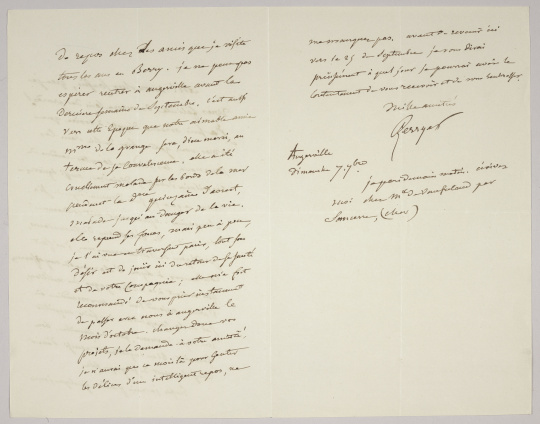 De repos chez des amis que je visite
tous les ans en Berry. je ne puis pas
espérer rentrer à augerville avant la
dernière semaine de Septembre. c'est aussi
vers cette époque que notre aimable amie
Mme de la grange sera, dieu merci, au
terme de sa convalescence. elle a été
cruellement malade sur les bords de la mer
pendant la 2me quinzaine d'aout,
malade jusqu'au danger de la vie.
elle reprend ses forces, mais peu à peu,
je l'ai vue en traversant paris, tout son
désir est de jouir ici du retour de sa santé
et de votre compagnie; elle m'a fait
recommandé de vous prier instamment
de passer avec nous à augerville le
mois d'octobre. changez donc vos
projets, je le demande à votre amitié,
je n'aurai que ce mois là pour goûter
les délices d'un intelligent repos, ne
me manquez pas, avant de revenir ici
vers le 25 de Septembre je vous dirai
précisément à quel jour je pourrai avoir le
contentement de vous recevoir et de vous embrasser.
Mille amitiés
Berryer
Augerville
Dimanche 7 7bre
je pars demain matin. écrivez
moi chez Mr de par
Sancerre, (cher)